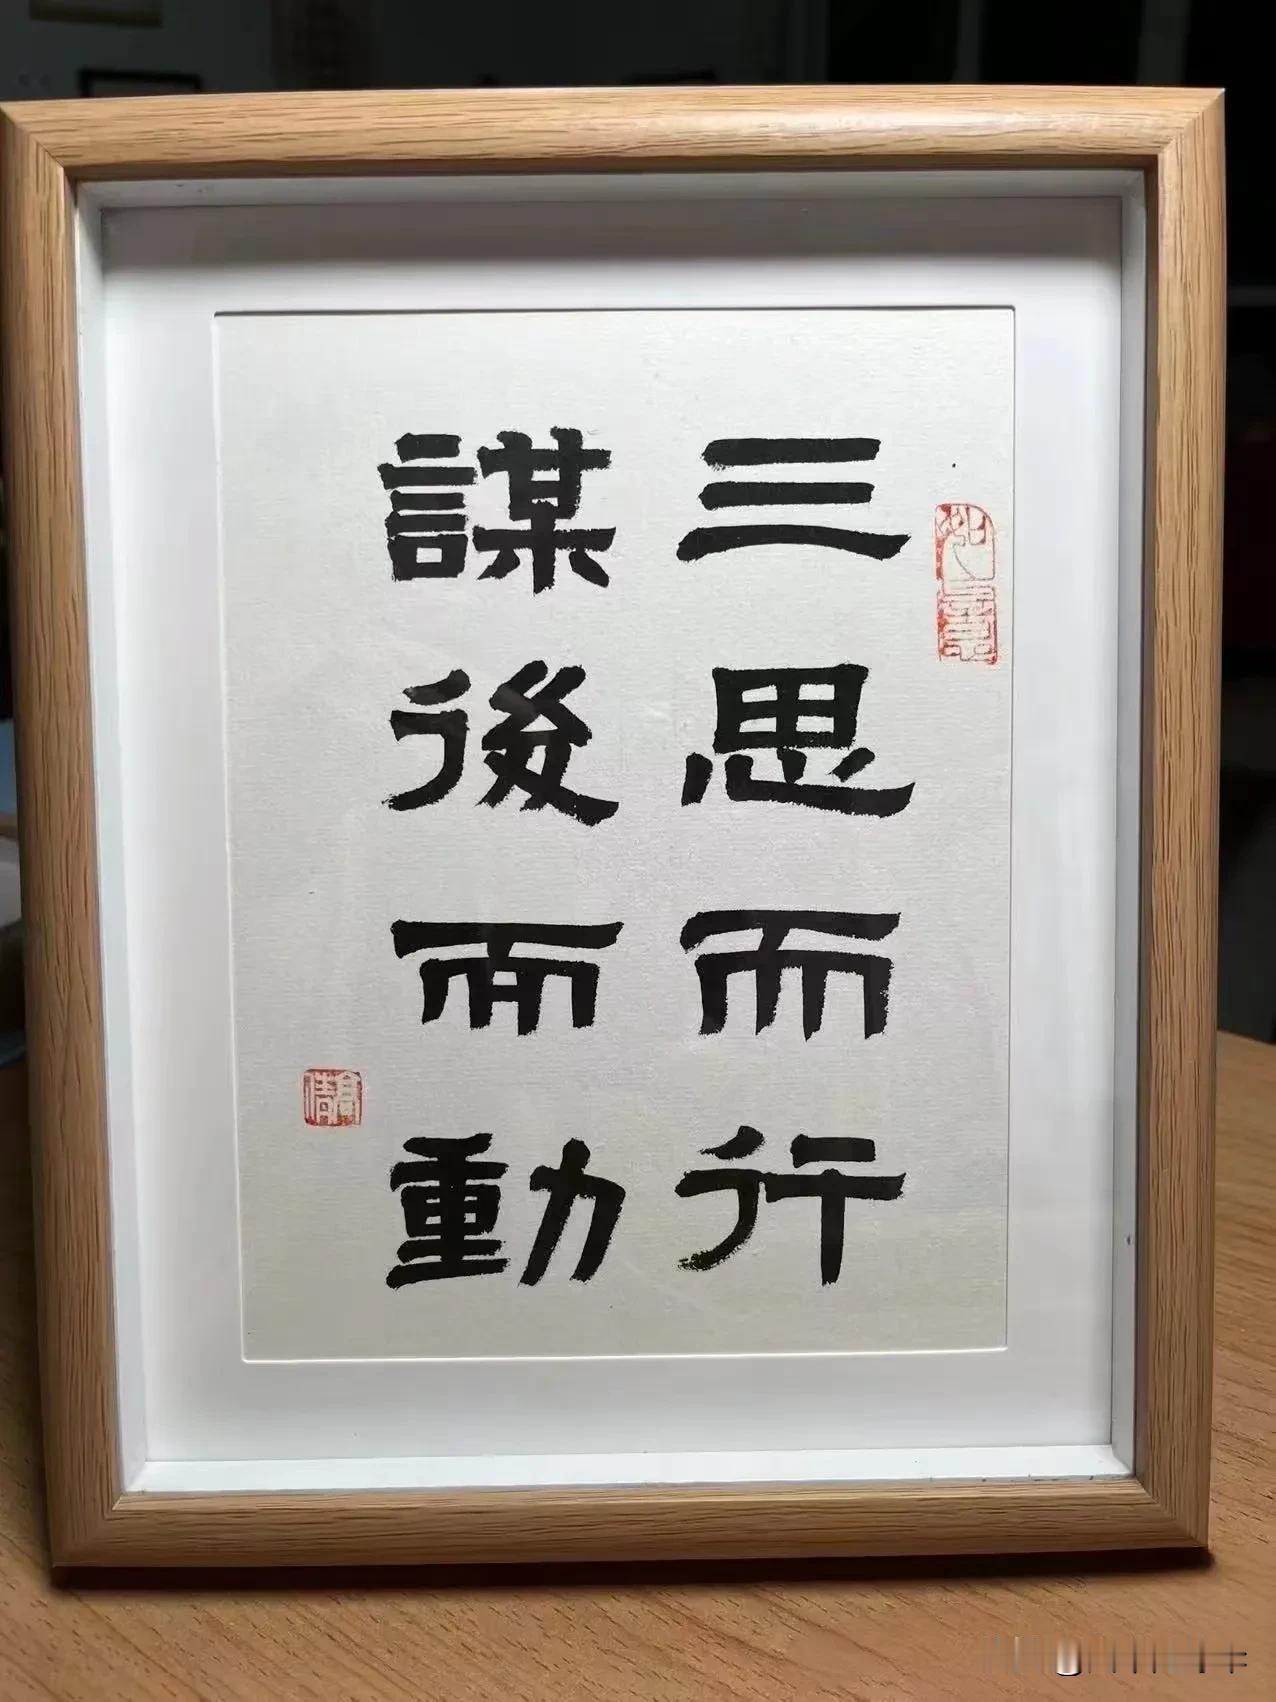 三思而行
謀後而動